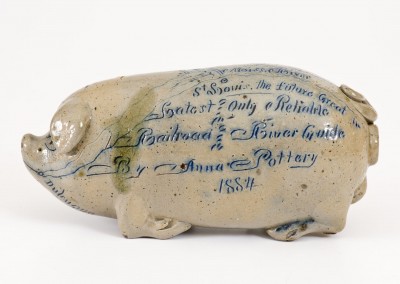 St Louis, the Future Great
Latest Only & Reliable
Railroad & River Guide
By Anna Pottery
1884